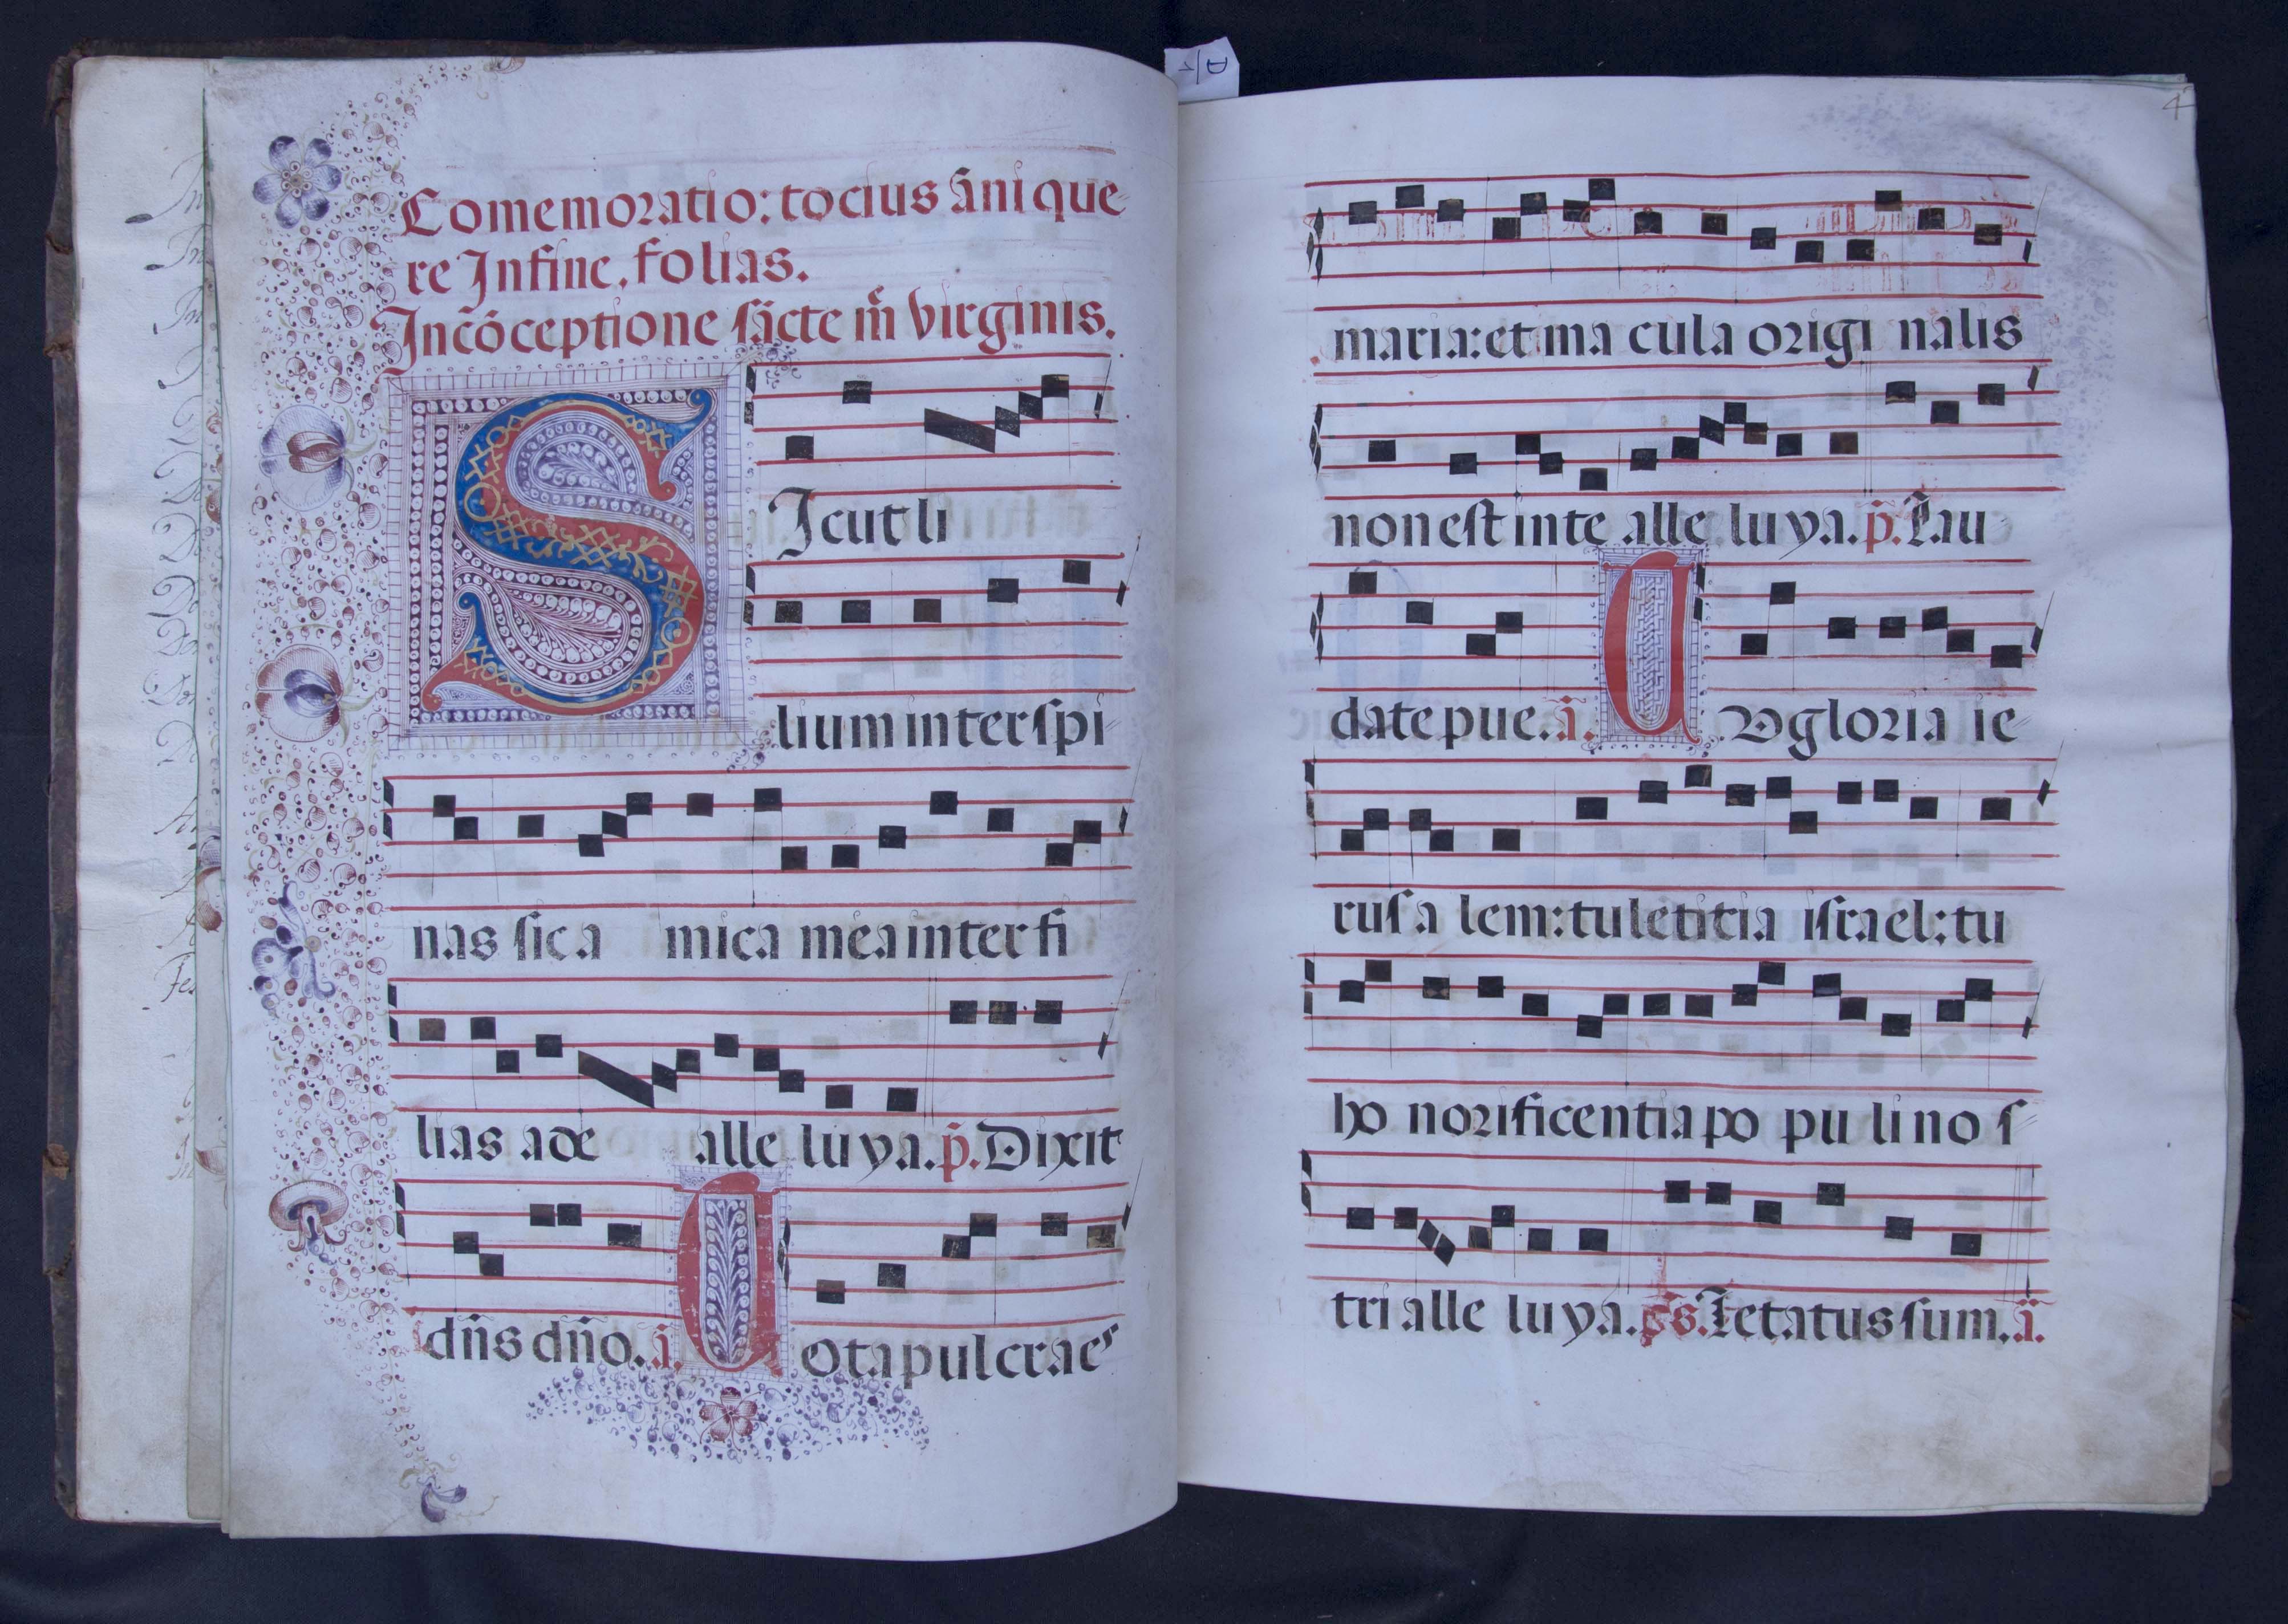 Comemoratio: tocius āni que-
re Infine. folias.
Incōceptione sācte m̄ virginis.
SIcut li
lium inter spi-
nas sic a mica mea inter fi
lias ade alle luya. p̄. Dixit
dn̄s dn̄o. ā. Tota pulcra es
4
maria: et ma cula origi nalis
non est in te alle luya. p̄. Lau-
date pue. ā. Tu gloria ie-
rusa lem: tu letitia israel: tu
ho norificentia po puli no s-
tri alle luya. ps. Letatus sum. ā.
D/1